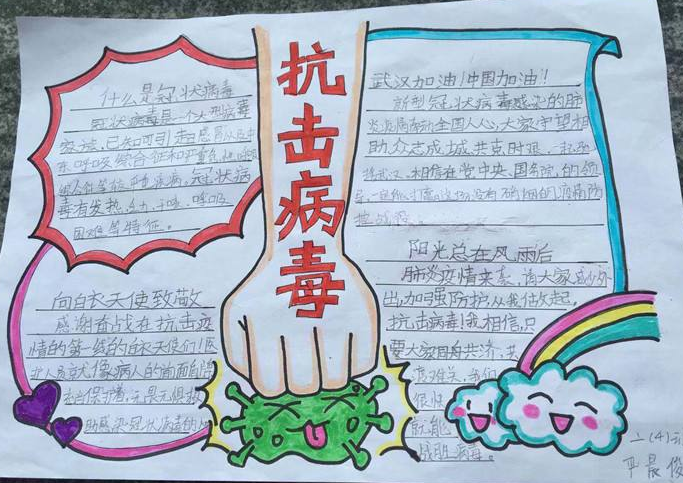 抗击病毒
什么是冠状病毒
冠状病毒是一个大型病毒
家族,已知可引起感冒以及中
东呼吸综合征和严重急性呼吸
冠状病
毒有发热、乏力、干咳、呼吸
困难等特征。
向白衣天使致敬
感谢奋战在抗击疫
情的第一线的白衣天使们!医
助感染冠状病毒的
武汉加油!中国加油!
新型冠状病毒感染的肺
炎疫情牵动全国人心,大家守望相
助,众志成城,共克时艰,一起
武汉,相信在党中央、国务院的领
导,一定能打赢这场没有硝烟的疫情防
控战役。
阳光总在风雨后
肺炎疫情来袭,请大家减少外
出,加强防护从我做起,
抗击病毒!我相信,只
要大家同舟共济,共
度难关,我们
很快
就能
战胜病毒。
二(4)